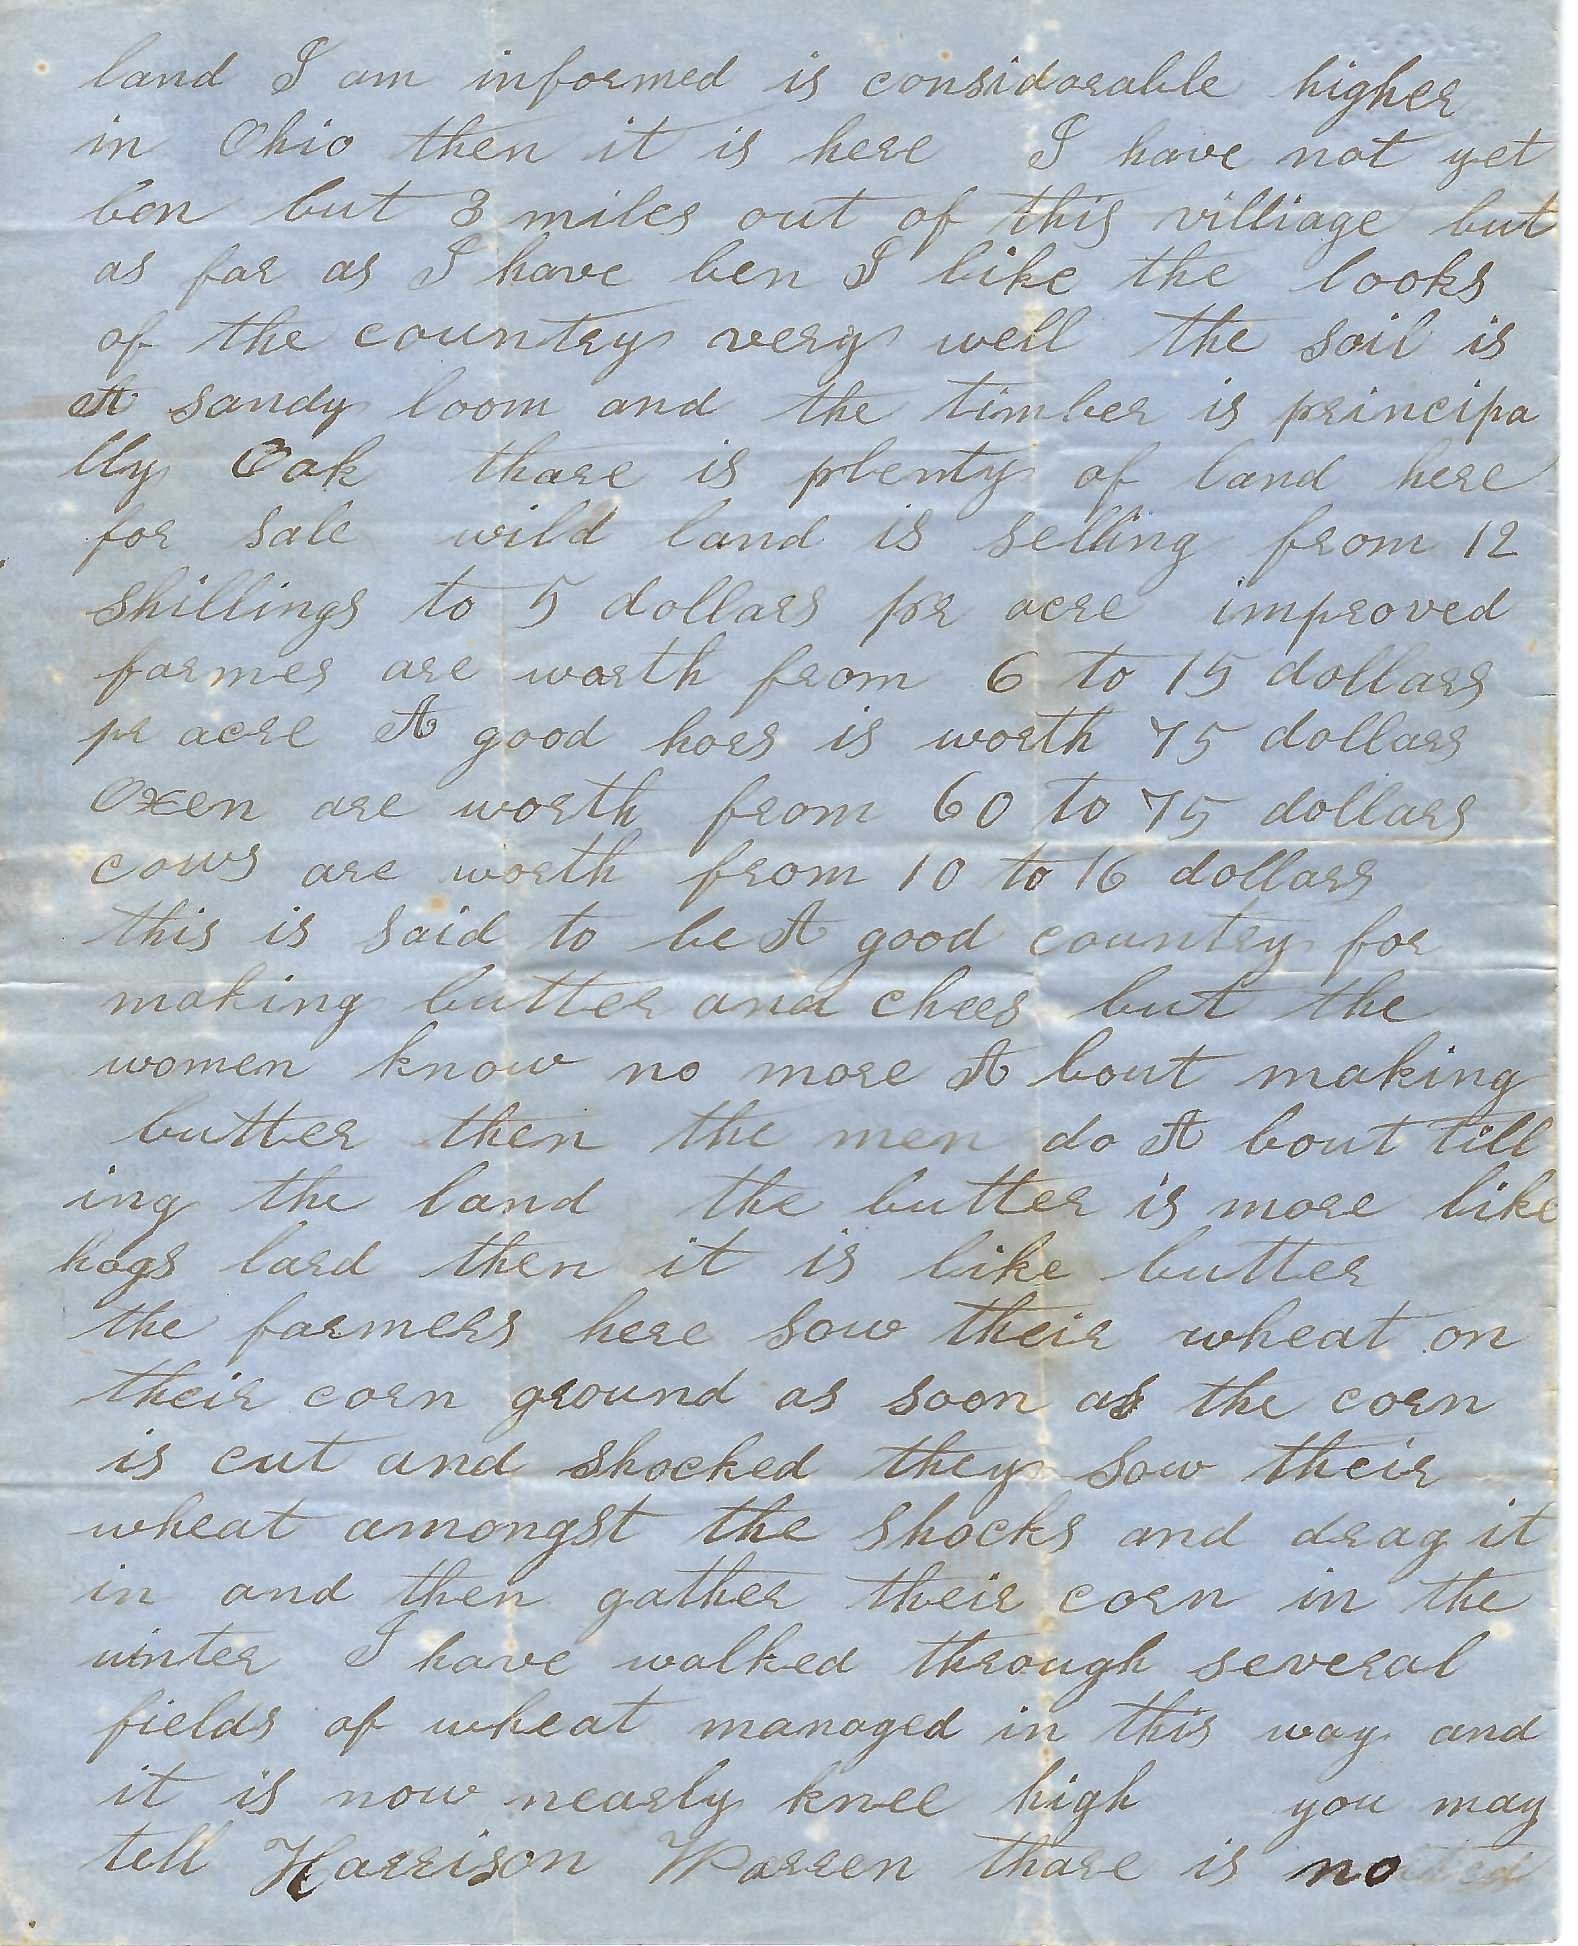 land I am informed is considarable higher
in Ohio then it is here I have not yet
ben but 3 miles out of this villiage but
as far as I have ben I like the looks
of the country very well the soil is
A sandy loom and the timber is principa
lly Oak thare is plenty of land here
for sale wild land is selling from 12
shillings to 5 dollars pr acre improved
farmes are worth from 6 to 15 dollars
pr acre A good hors is worth 75 dollars
Oxen are worth from 60 to 75 dollars
cows are worth from 10 to 16 dollars
this is said to be A good country for
making butter and chees but the
women know no more A bout making
butter then the men do A bout till
ing the land the butter is more like
hogs lard then it is like butter
the farmers here sow their wheat on
their corn ground as soon as the corn
is cut and shocked they sow their
wheat amongst the shocks and drag it
in and then gather their corn in the
winter I have walked through several
fields of wheat managed in this way and
it is now nearly knee high you may
tell Harrison Warren thare is no